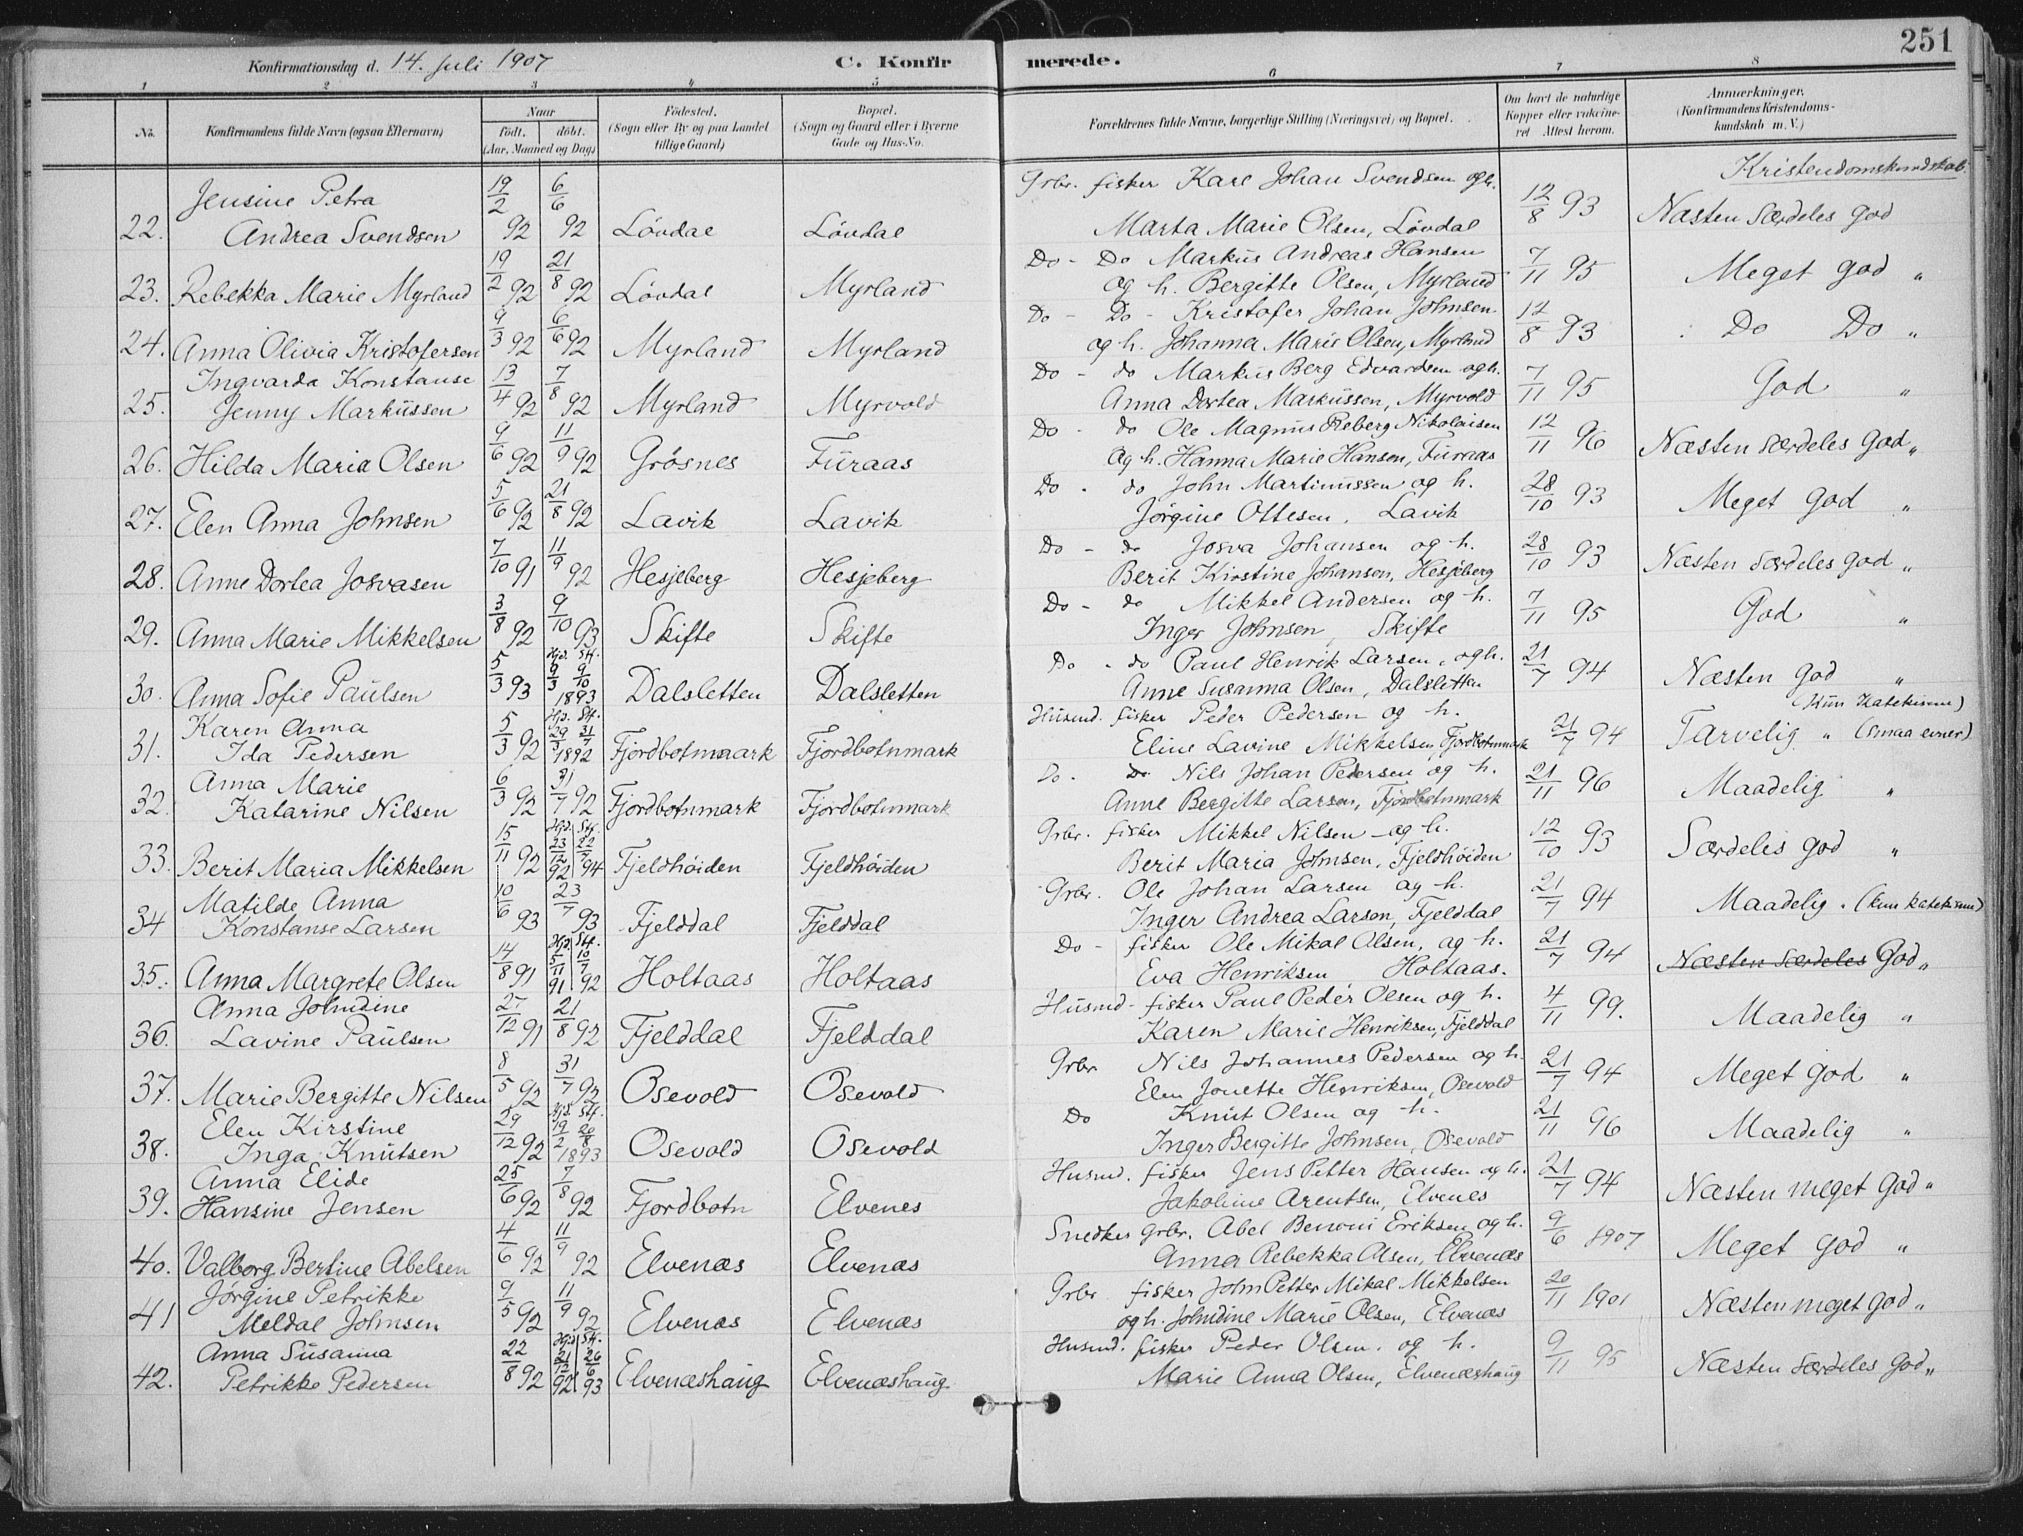 251
Konfirmationsdag d. 14. Juli 1907 C. Konfirmerede.
1 2 3 4 5 6 7 8
No. Konfirmandens fulde Navn (ogsaa Efternavn) Naar født. døbt. (Aar, Maaned og Dag) Fødested. (Sogn eller By og paa Landet tillige Gaard) Bopæl. (Sogn og Gaard eller i Byerne Gade og Hus-No. Forældrenes fulde Navne, borgerlige Stilling (Næringsvei) og Bopæl. Om havt de naturlige Kopper eller vakcineret Attest herom. Anmærkninger. (Konfirmandens Kristendomskundskab m. V.)
Kristendomskundskab.
22. Jensine Petra Andrea Svendsen 19/2 92 6/6 92 Løvdal Løvdal Grbr. fisker Karl Johan Svendsen og h. Marta Marie Olsen, Løvdal 12/8 93 Næsten Særdeles god
23. Rebekka Marie Myrland 19/2 92 21/8 92 Løvdal Myrland Do - Do Markus Andreas Hansen og h. Bergitte Olsen, Myrland 7/11 95 Meget god "
24. Anna Olivia Kristofersen 9/3 92 6/6 92 Myrland Myrland Do - Do - Kristofer Johan Johnsen og h. Johanna Marie Olsen, Myrland 12/8 93 Do Do "
25. Ingvarda Konstanse Jenny Markussen 13/4 92 7/8 92 Myrland Myrvold Do - do Markus Berg Edvardsen og h. Anna Dortea Markussen, Myrvold 7/11 95 God "
26. Hilda Maria Olsen 9/6 92 11/9 92 Grøsnes Furaas Do - do Ole Magnus Reberg Nikolaisen og h. Hanna Marie Hansen, Furaas 12/11 96 Næsten særdeles God "
27. Elen Anna Johnsen 5/6 92 21/8 92 Lavik Lavik Do - do John Martinussen og h. Jørgine Ottesen, Lavik 28/10 93 Meget God "
28. Anne Dortea Josvasen 7/10 91 11/9 92 Hesjeberg Hesjeberg Do - do Josva Johansen og h. Berit Kirstine Johansen, Hesjeberg 28/10 93 Næsten Særdeles God "
29. Anna Marie Mikkelsen 3/8 92 9/10 93 Skifte Skifte Do - do Mikkel Andersen og h. Inger Johnsen, Skifte 7/11 95 God "
30. Anna Sofie Paulsen 5/3 93 Hjd. 9/3 Stf. 9/10 1893 Dalsletten Dalsletten Do - do Paul Henrik Larsen, og h. Anne Susanna Olsen, Dalsletten 21/7 94 Næsten God "
31. Karen Anna Ida Pedersen 5/3 92 Hjd. 29/3 Stf. 31/7 1892 Fjordbotnmaark Fjordbotnmark Husmd. fisker Peder Pedersen og h. Eline Lavine Mikkelsen, Fjordbotnmark 21/7 94 Tarvelig " (Kun Katekisme) (Smaa evner)
32. Anna Marie Katarine Nilsen 6/3 92 31/7 92 Fjordbotnmark Fjordbotnmark Do. Do Nils Johan Pedersen og h. Anne Bergitte Larsen, Fjordbotnmark 21/11 96 Maadelig "
33. Berit Maria Mikkelsen 15/11 92 Hjd. 23/12 92 Stf. 22/7 94 Fjeldhöiden Fjeldhöiden Grbr. fisker Mikkel Nilsen og h. Berit Maria Johnsen, Fjeldhöiden 12/10 93 Særdeles god "
34 Matilde Anna Konstanse Larsen 10/6 93 23/7 93 Fjelddal Fjelddal Grbr. Ole Johan Larsen og h. Inger Andrea Larsen, Fjelddal 21/7 94 Maadelig. (kun katekisme)
35. Anna Margrete Olsen 14/8 91 Hjd. 5/11 91 Stf. 10/7 92 Holtaas Holtaas Do - fisker Ole Mikal Olsen, og h. Eva Henriksen Holtaas. 21/7 94 Næsten særdeles God "
36. Anna Johndine Lavine Paulsen 27/12 91 21/8 92 Fjelddal Fjelddal Husmd - fisker Paul Peder Olsen og h. Karen Marie Henriksen, Fjelddal 4/11 99. Maadelig "
37. Marie Bergitte Nilsen 8/5 92 31/7 92 Osevold Osevold Grbr Nils Johannes Pedersen og h. Elen Jonette Henriksen, Osevold 21/7 94 Meget god "
38. Elen Kirstine Inga Knutsen 29/12 92 Hjd. 19/2 Stf. 20/8 1893 Osevold Osevold Do Knut Olsen og h. Inger Bergitte Johnsen, Osevold 21/11 96 Maadelig "
39. Anna Elide Hansine Jensen 25/6 92 7/8 92 Fjordbotn Elvenes Husmd. fisker Jens Petter Hansen og h. Jakoline Arentsen, Elvenes 21/7 94 Næsten meget God "
40. Valborg Bertine Abelsen 4/6 92 11/9 92 Elvenæs Elvenæs Snedker Grbr. Abel Benoni Eriksen og h. Anna Rebekka Olsen, Elvenæs 9/6 1907 Meget God "
41 Jørgine Petrikke Meldal Johnsen 9/5 92 11/9 92 Elvenæs Elvenæs Grbr fisker John Petter Mikal Mikkelsen og h. Johndine Marie Olsen, Elvenæs 20/11 1901 Næsten meget God "
42. Anna Susanna Petrikke Pedersen 22/8 92 Hjd. 21/12 92 Stf. 26/6 93 Elvenæshaug Elvenæshaug Husmd. fisker Peder Olsen og h. Marie Anna Olsen, Elvenæshaug 9/11 95 Næsten Særdeles God "